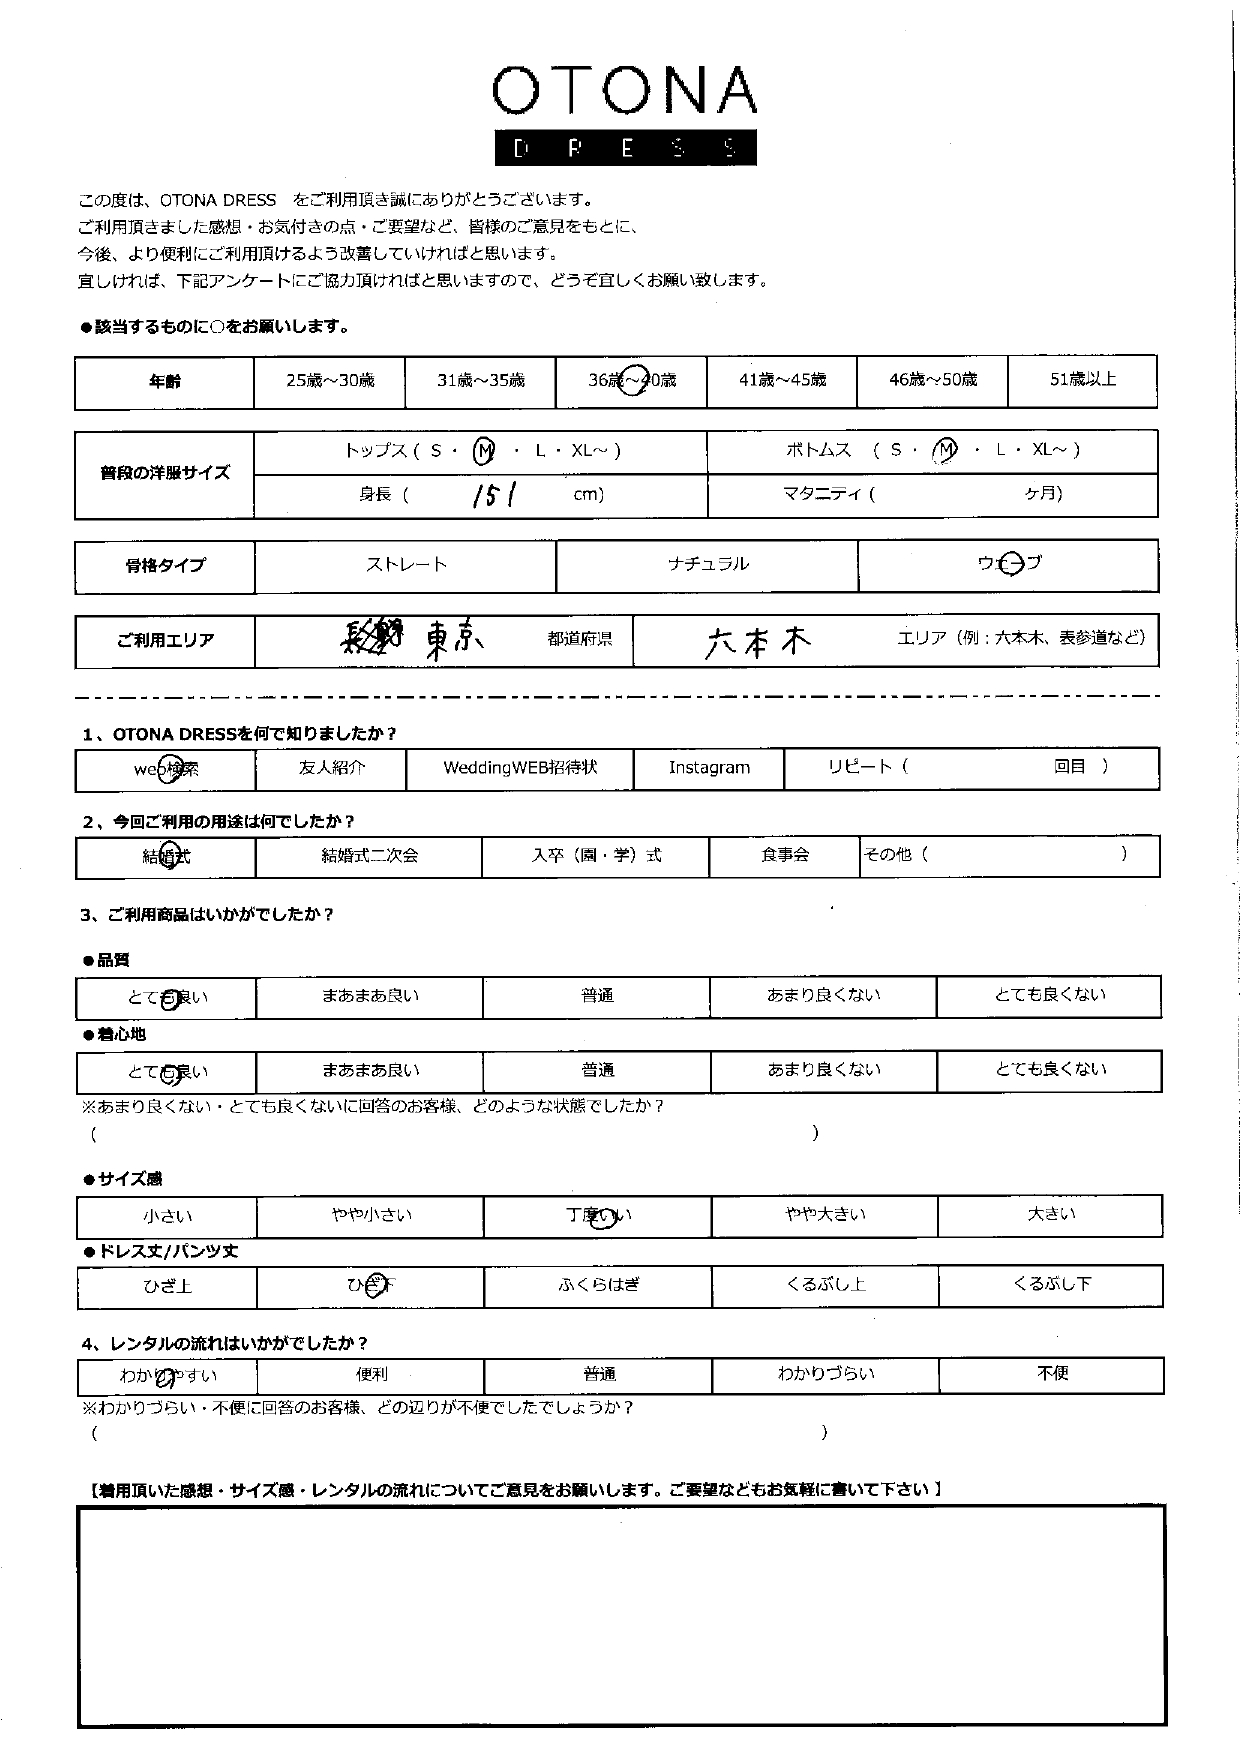 OTONA
DRESS
この度は、OTONA DRESS をご利用頂き誠にありがとうございます。
ご利用頂きました感想・お気付きの点・ご要望など、皆様のご意見をもとに、
今後、より便利にご利用頂けるよう改善していければと思います。
宜しければ、下記アンケートにご協力頂ければと思いますので、どうぞ宜しくお願い致します。
●該当するものに○をお願いします。
年齢 25歳～30歳 31歳～35歳 36歳～40歳 41歳～45歳 46歳～50歳 51歳以上
普段の洋服サイズ トップス ( S ・ M ・ L ・ XL～ ) ボトムス ( S ・ M ・ L ・ XL～ )
身長 ( 151 cm) マタニティ ( ケ月)
骨格タイプ ストレート ナチュラル ウェーブ
ご利用エリア 東京 都道府県 六本木 エリア（例：六本木、表参道など）
1、OTONA DRESSを何で知りましたか？
web検索 友人紹介 WeddingWEB招待状 Instagram リピート ( 回目 )
2、今回ご利用の用途は何でしたか？
結婚式 結婚式二次会 入卒（園・学）式 食事会 その他 ( )
3、ご利用商品はいかがでしたか？
●品質
とても良い まあまあ良い 普通 あまり良くない とても良くない
●着心地
とても良い まあまあ良い 普通 あまり良くない とても良くない
※あまり良くない・とても良くないに回答のお客様、どのような状態でしたか？
( )
●サイズ感
小さい やや小さい 丁度いい やや大きい 大きい
●ドレス丈/パンツ丈
ひざ上 ひざ下 ふくらはぎ くるぶし上 くるぶし下
4、レンタルの流れはいかがでしたか？
わかりやすい 便利 普通 わかりづらい 不便
※わかりづらい・不便に回答のお客様、どの辺りが不便でしたでしょうか？
( )
【着用頂いた感想・サイズ感・レンタルの流れについてご意見をお願いします。ご要望などもお気軽に書いて下さい】